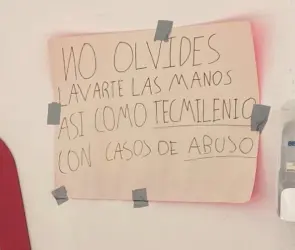 NO OLVIDES
LAVARTE LAS MANOS
ASI COMO TECMILENIO
CON CASOS DE ABUSO